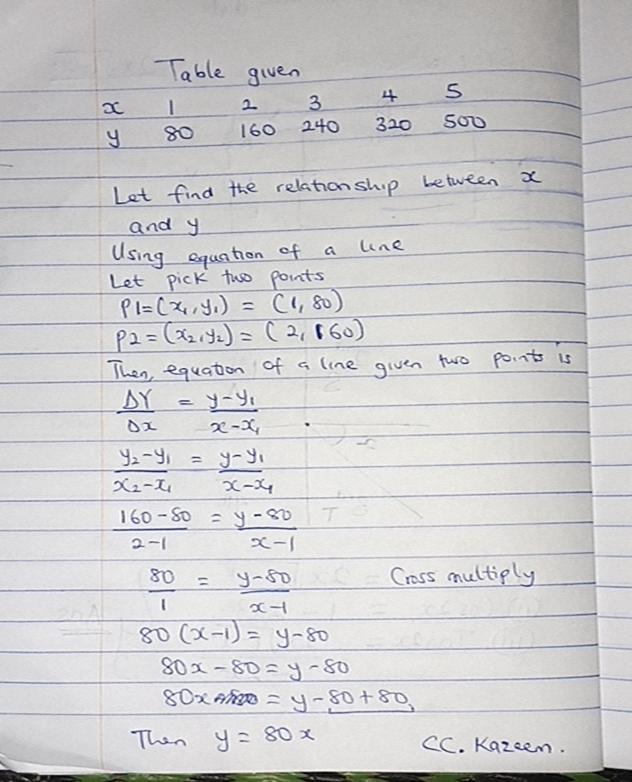 Table given
x 1 2 3 4 5
y 80 160 240 320 500
Let find the relationship between x
and y
Using equation of a line
Let pick two points
P1=(x₁,y₁) = (1,80)
P2=(x₂,y₂) = (2,160)
Then, equation of a line given two points is
ΔY/Δx = y-y₁/x-x₁
y₂-y₁/x₂-x₁ = y-y₁/x-x₁
160-80/2-1 = y-80/x-1
80/1 = y-80/x-1 Cross multiply
80(x-1) = y-80
80x-80 = y-80
80x = y-80+80
Then y = 80x CC. Kazeem.